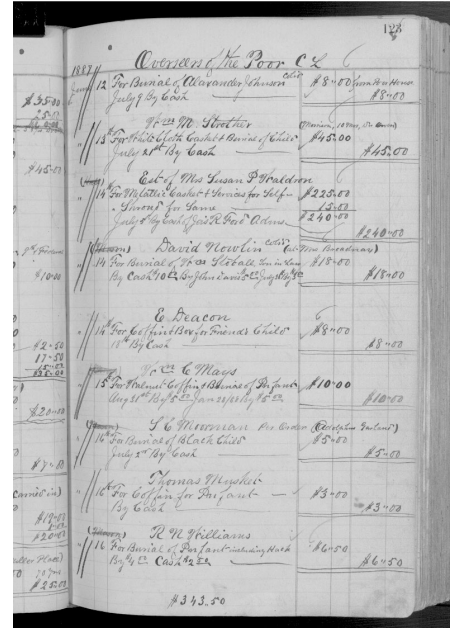 123
Overseers of the Poor C L
1887
June 12 For Burial of Alexander Johnson Cold $8-00 from Alms House
July 9 By Cash $8-00
Wm M. Strother
" 13 For White Cloth Casket & Burial of Child $45-00
July 21st By Cash $45-00
Est of Mrs Susan P Waldron
14 For Metallic Casket & Services for Self $225-00
Shroud for Same 15-00
July By Cash of Jas R Ford Adms $240-00
$240-00
David Nowlin Cold
14 For Burial of Wm Son in Law $18-00
By Cash 10 By John $18-00
E Deacon
" 14th For Coffin & Box for Friends Child $8-00
18th By Cash $8-00
Wm C Mays
15 For Walnut Coffin & Burial of Infant $10-00
Aug 31st By $5 00 Jan By $5 00 $10-00
S C Moorman Per Order (Adolphus )
16th For Burial of Black Child $5-00
July 2nd By Cash $5-00
Thomas Musket
" 16th For Coffin for Infant $3-00
By Cash $3-00
R N Williams
16 For Burial of Infant including Hack $6-50
By $4 00 Cash $2 50 $6-50
$343.50
$35-00
$45-00
$10-00
$2-50
17-50
15-00
$35-00
$20-00
$7-00
Carried in)
$19-00
1-00
$20-00
Place)
$25-00